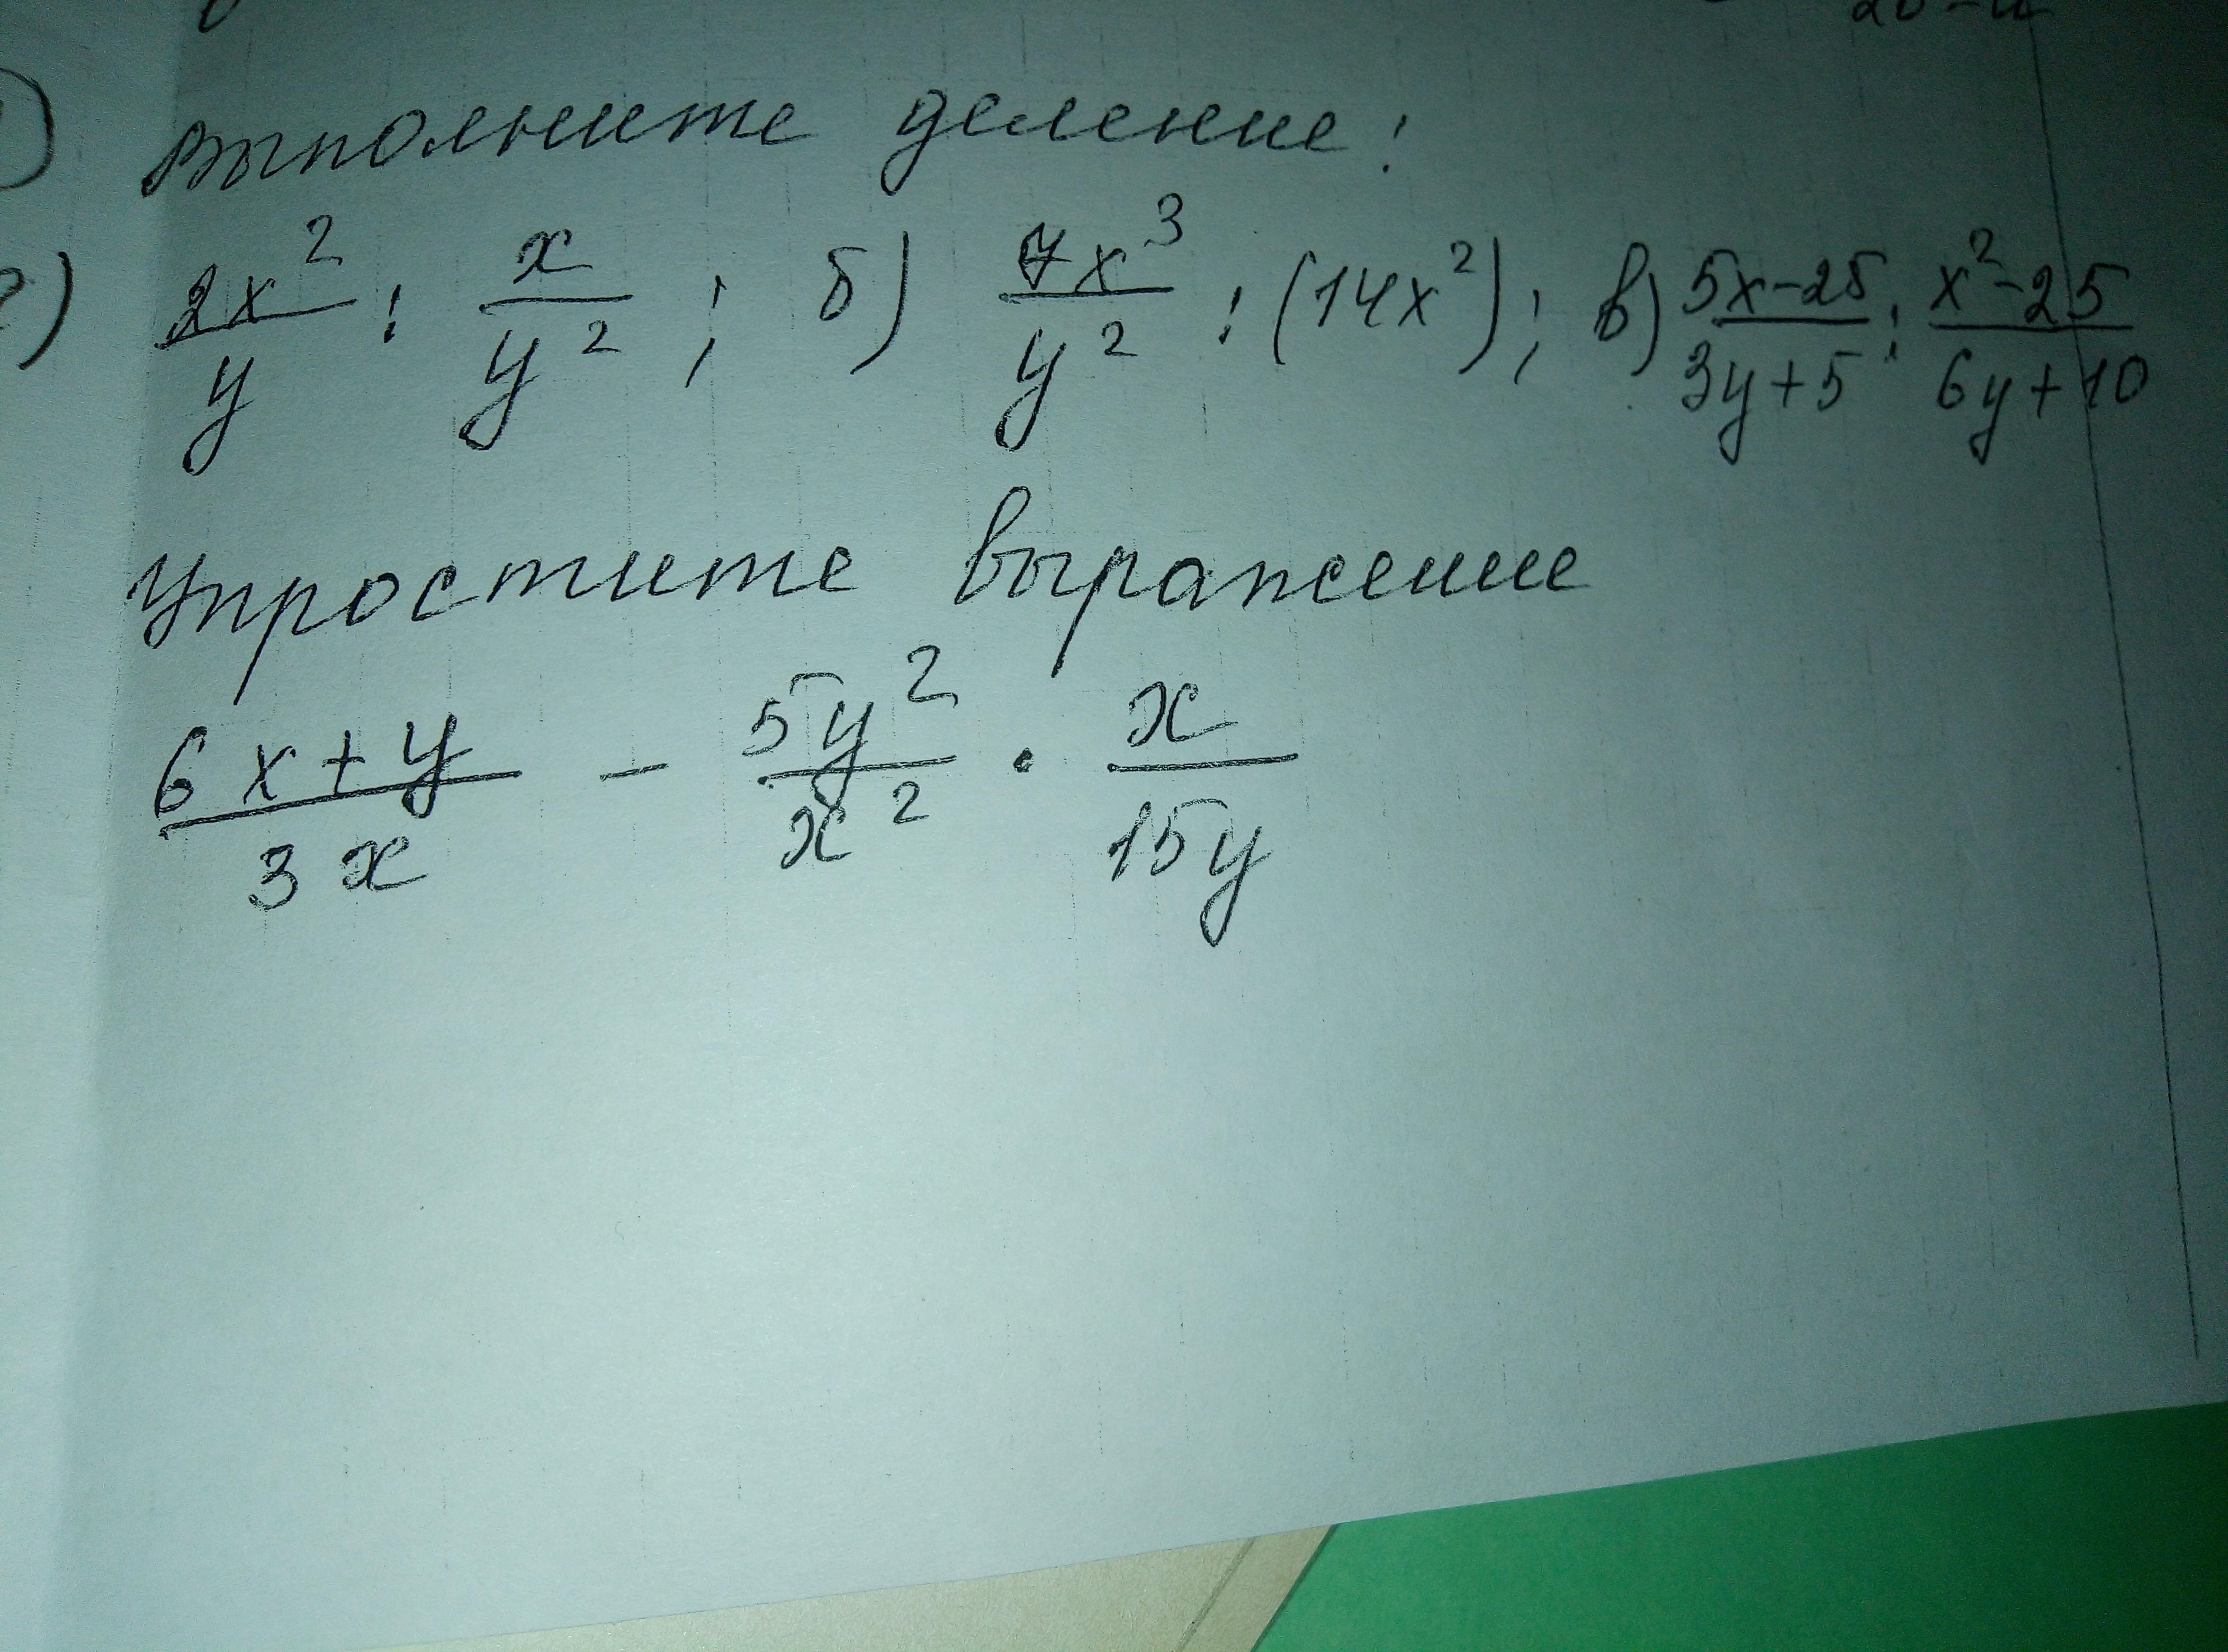 Выполните деление:
) 2x²/y : x/y² ; б) 7x³/y² : (14x²); в) 5x-25/3y+5 : x²-25/6y+10
Упростите выражение
6x+y/3x - 5y²/x² · x/15y